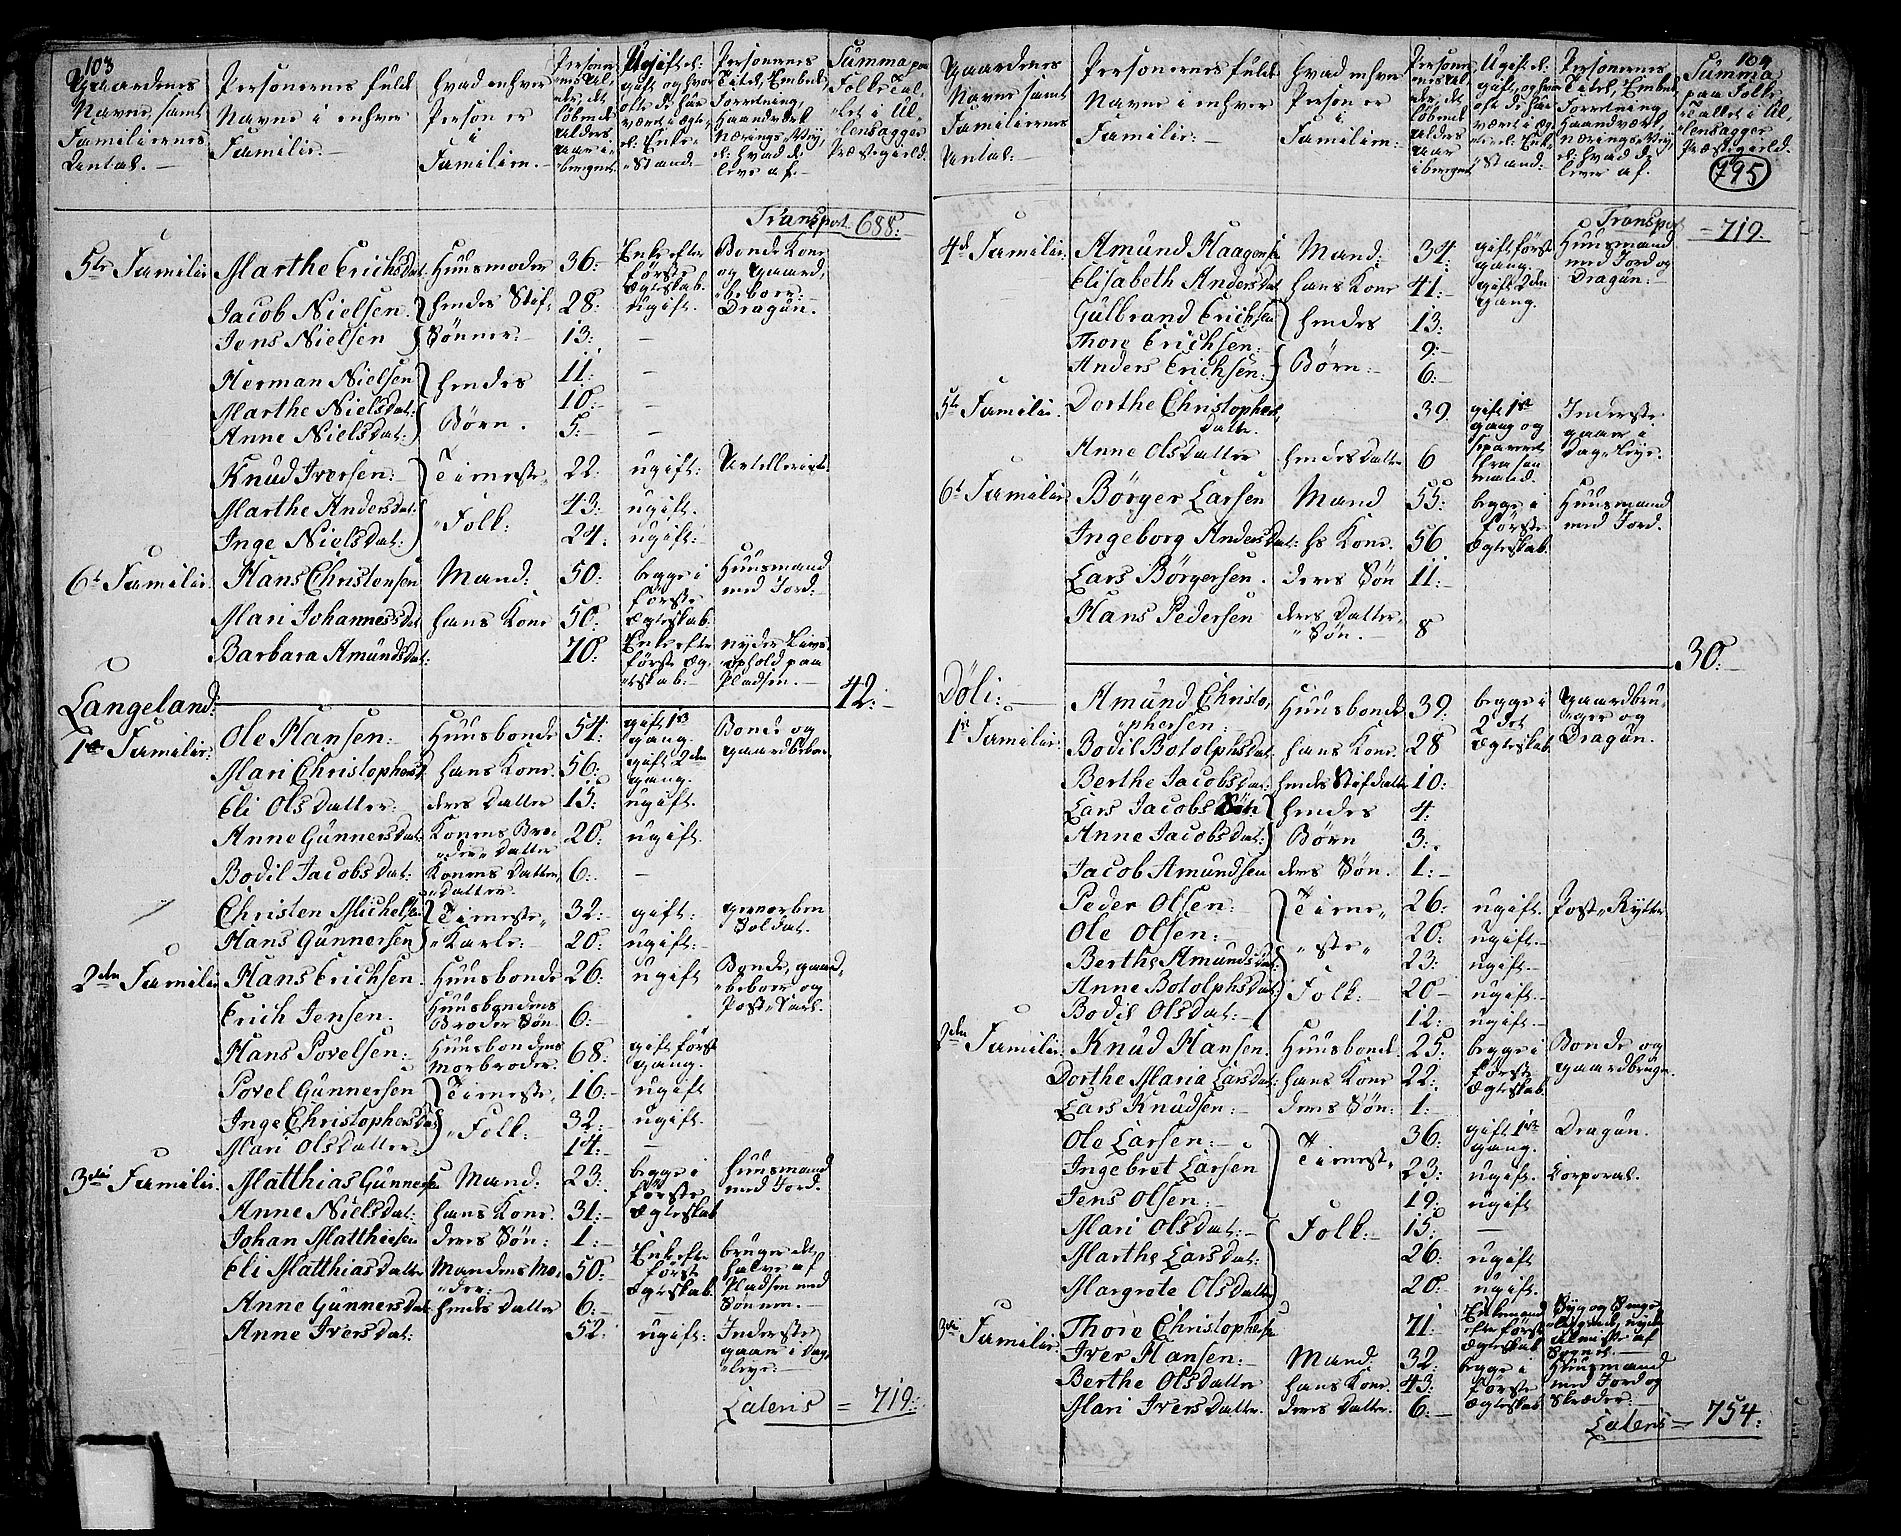 103
Gaardenes Navne, samt Familiernes Antal.
Personernes fulde Navne i enhver Familie.
hvad enhver Person er i Familien.
Personernes Alder, det løbende Alders Aar iberegnet.
Ugift el: gift, og hvor ofte de har været i Ægte- el: Enke-Stand.
Personernes Titel, Embede, Forretning, Haandværk, Nærings-Vej, el: hvad de leve af.
Summa paa Folke Tallet i Ullensagger Præstegield.
Transport 688:
5te Familie Marthe Erichsdat: Huusmoder 36: Enke efter første Ægteskab. Bonde Kone og Gaardbeboer.
Jacob Nielsen. hendes Stif- 28: ugift. Dragun.
Jens Nielsen Sønner: 13: —
Herman Nielsen hendes 11: —
Marthe Nielsdat: Børn. 10: —
Anne Nielsdat: 5: —
Knud Iversen: Tieneste- 22: ugift: Artellerist.
Marthe Andersdat: Folk: 43: ugift.
Inge Nielsdat: 24: ugift:
6te Familie: Hans Christensen Mand: 50: begge i første Ægteskab. Huusmand med Jord:
Mari Johannesdat hans Kone 50:
Barbara Amundsdat: 70: Enke efter første Ægteskab: nyder Livsophold paa Pladsen.
42:
Langeland:
1ste Familie: Ole Hansen: Huusbonde 54: gift 1ste gang. Bonde og gaardbeboer
Mari Christophersd hans Kone. 56: gift 2den gang.
Eli Olsdatter: deres Datter 15: ugift
Anne Gunnersdat: Konens Broder Datter 20: ugift.
Bodil Jacobsdat: Konens Datter Datter. 6: —
Christen Michelsen Tieneste- 32: gift: gevorben Soldat.
Hans Gunnersen Karle: 20: ugift:
2den Familie Hans Erichsen Huusbonde 26: ugift Bonde, gaardbeboer og Post-Karl.
Erich Jensen. Huusbondens Broder Søn 6:
Hans Povelsen: Huusbondens Morbroder. 68: gift først gang.
Povel Gunnersen Tieneste- 16: ugift
Inge Christophersdat Folk: 32: ugift.
Mari Olsdatter: 14: —
3die Familie. Matthias Gunnersen Mand: 23: begge i første Ægteskab Huusmand med Jord.
Anne Nielsdat: hans Kone. 31:
Johan Matthiesen deres Søn: 1:
Eli Matthiasdatter Mandens Moder: 50: Enke efter første Ægteskab. bruger det halve af Pladsen med Sønnen.
Anne Gunnersdat: hendes Datter 6: —
Anne Iversdat: 52: ugift: Inderste gaar i Dagleye:
Lateris = 719:
104
795
Gaardenes Navne samt Familiernes Antal:
Personernes fulde Navne i enhver Familie:
hvad enhver Person er i Familien:
Personernes Alder, det løbende Alders Aar iberegnet
Ugift el: gift, og hvor ofte de har været i Ægte- el: Enke-Stand:
Personernes Titel, Embede, Forretning, Haandværk, Nærings-Vej, el: hvad de lever af.
Summa paa Folke-Tallet i Ullensagger Præstegield.
Transport = 719:
4de Familie. Amund Haagensen Mand: 34: gift første gang. Huusmand med Jord og Dragun:
Elisabeth Andersdat hans Kone 41: gift 2den gang.
Gulbrand Erichsen hendes 13:
Thore Erichsen: 9:
Anders Erichsen: Børn: 6:
5te Familie. Dorthe Christophersdatter. 39 gift 1ste gang og separeret fra sin mand. Inderste gaar i Dag-leye.
Anne Olsdatter hendes Datter 6
6te Familie Børger Larsen Mand 55: begge i første Ægteskab. Huusmand med Jord.
Ingeborg Andersdat: hs Kone. 56
Lars Børgersen. deres Søn 11:
Hans Pedersen deres Datter Søn. 8
30:
Døli:
1ste Familie. Amund Christophersen: Huusbonde 39: begge i 2det Ægteskab Gaardbruger og Dragun.
Bodil Botolphsdat. hans Kone. 28
Berthe Jacobsdat: hendes Stifdatter 10:
Lars Jacobs Søn hendes 4:
Anne Jacobsdat: Børn 3:
Jacob Amundsen deres Søn. 1:
Peder Olsen: Tiene- 26: ugift. Post-Rytter
Ole Olsen: ste- 20: ugift.
Berthe Amundsdat: 23: ugift.
Anne Botolphsdat: Folk: 20 ugift.
Bodil Olsdat: 12: ugift.
2den Familie. Knud Hansen. Huusbonde. 25: begge i første Ægteskab Bonde og gaardbruger.
Dorthe Maria Larsdat: hans Kone 22:
Lars Knudsen: deres Søn: 1:
Ole Larsen: Tieneste- 36: gift 1ste gang. Dragun.
Ingebret Larsen 23: ugift. Corporal.
Jens Olsen: 19: ugift
Mari Olsdat: Folk: 15: —
Marthe Larsdat: 26: ugift
Margrete Olsdatter 20: ugift.
3die Familie. Thore Christophersen 71: Enkemand efter første Ægteskab
Iver Hansen: Mand: 32: begge i første Ægteskab Huusmand med Jord og Skræder:
Berthe Olsdatter hans Kone. 43:
Mari Iversdatter. deres Datter. 6:
Lateris = 754: